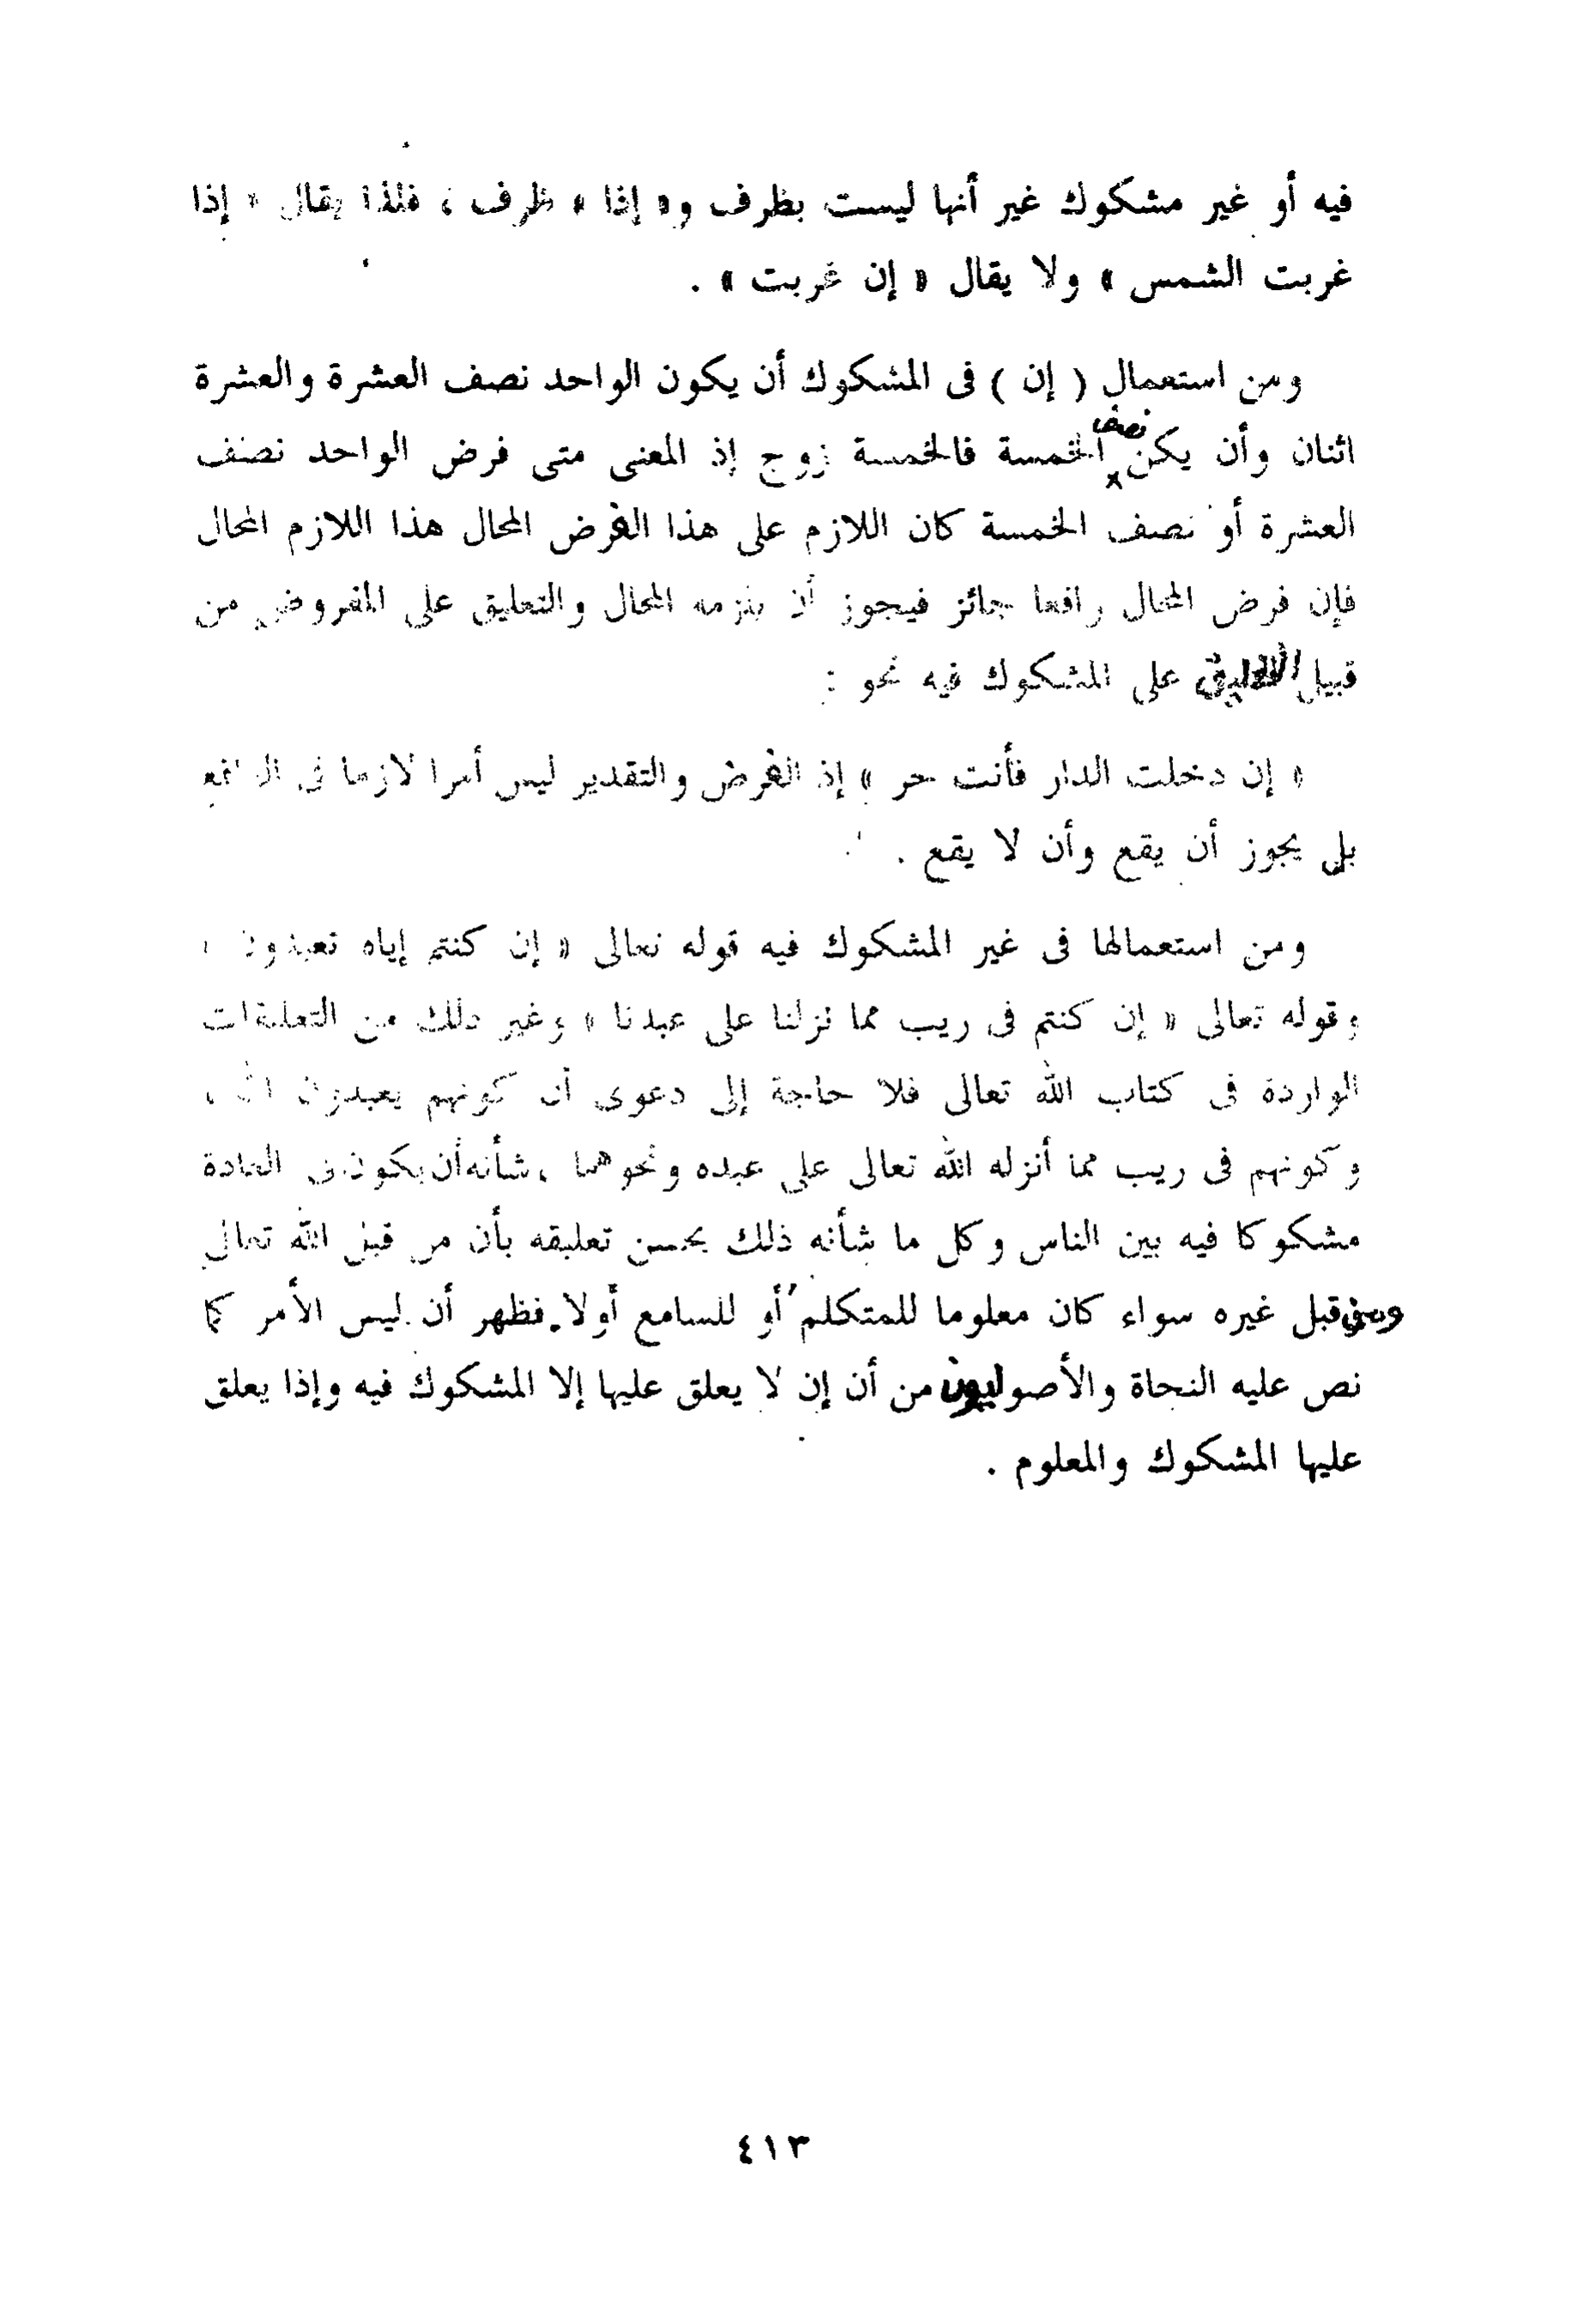 فيه أو غير مشكوك غير أنها ليست بظرف و« إذا » ظرف ، فلذا يقال « إذا
غربت الشمس » ولا يقال « إن غربت » .
ومن استعمال ( إن ) فى المشكوك أن يكون الواحد نصف العشرة والعشرة
اثنان وأن يكن نصف الخمسة فالخمسة زوج إذ المعنى متى فرض الواحد نصف
العشرة أو نصف الخمسة كان اللازم على هذا الفرض المحال هذا اللازم المحال
فإن فرض المحال رافعا جائز فيجوز أن يلزمه المحال والتعليق على المفروض من
قبيل على المشكوك فيه نحو :
« إن دخلت الدار فأنت حر » إذ الفرض والتقدير ليس أمرا لازما فى الواقع
بل يجوز أن يقع وأن لا يقع .
ومن استعمالها فى غير المشكوك فيه قوله تعالى « إن كنتم إياه تعبدون »
وقوله تعالى « إن كنتم فى ريب مما نزلنا على عبدنا » وغير ذلك من التعليقات
الواردة فى كتاب الله تعالى فلا حاجة إلى دعوى أن كونهم يعبدون الله ،
وكونهم فى ريب مما أنزله الله تعالى على عبده ونحوهما ، شأنه أن يكون فى العادة
مشكوكا فيه بين الناس وكل ما شأنه ذلك يحسن تعليقه بأن من قبل الله تعالى
ومن قبل غيره سواء كان معلوما للمتكلم أو للسامع أولا . فظهر أن ليس الأمر كما
نص عليه النحاة والأصوليون من أن إن لا يعلق عليها إلا المشكوك فيه وإذا يعلق
عليها المشكوك والمعلوم .
٤١٣